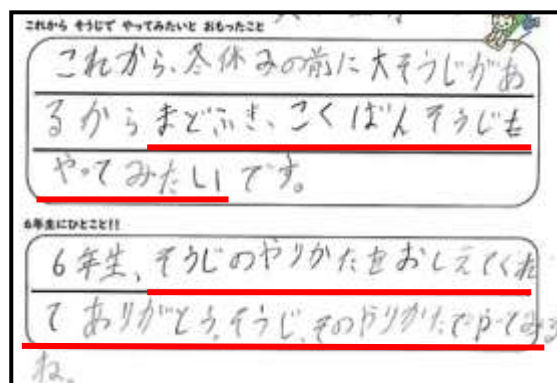 これから そうじで やってみたいと おもったこと
これから、冬休みの前に大そうじがあ
るからまどふき、こくばんそうじも
やってみたいです。
6年生にひとこと!!
6年生、そうじのやりかたをおしえてくれ
てありがとう。そうじ、そのやりかたでやってみる
ね。